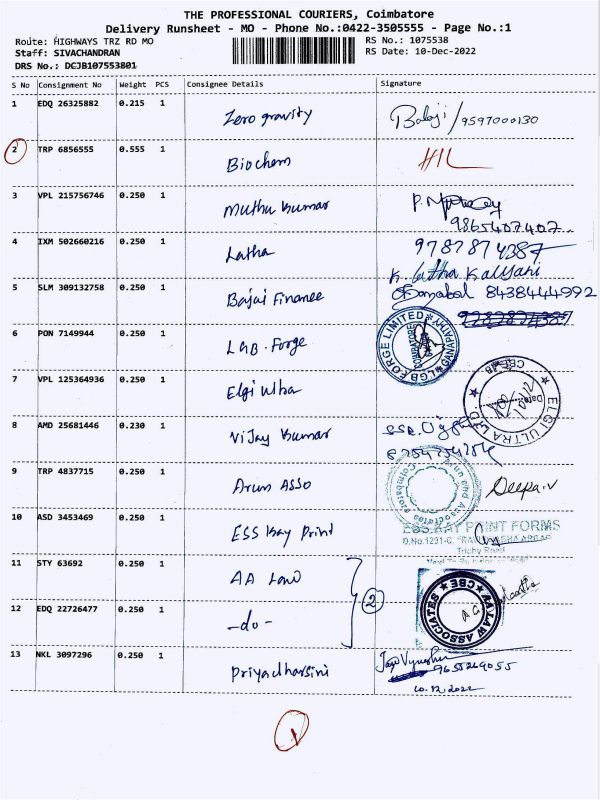 THE PROFESSIONAL COURIERS, Coimbatore
Delivery Runsheet - MO - Phone No.:0422-3505555 - Page No.:1
Route: HIGHWAYS TRZ RD MO
RS No.: 1075538
Staff: SIVACHANDRAN
RS Date: 10-Dec-2022
DRS No.: DCJB107553801
S No Consignment No Weight PCS Consignee Details Signature
1 EDQ 26325882 0.215 1 Zero gravity Balaji/9597000130
2 TRP 6856555 0.555 1 Biochem HIL
3 VPL 215756746 0.250 1 Muthu Kumar
9865407407
4 IXM 502660216 0.250 1 Latha 9787874387
K. Latha Kalyani
5 SLM 309132758 0.250 1 Bajaj Finance 8438444992
6 PON 7149944 0.250 1 LGB. Forge LGB FORGE LIMITED GANAPATHY COIMBATORE
7 VPL 125364936 0.250 1 Elgi Ultra ELGI ULTRA LTD CBE Date: 10/12
8 AMD 25681446 0.230 1 Vijay Kumar
9 TRP 4837715 0.250 1 Arun Asso Arun and Associates Coimbatore Deepa.V
10 ASD 3453469 0.250 1 ESS Bay Print ESS KAY PRINT FORMS
Trichy Road
11 STY 63692 0.250 1 AA Law AALAW ASSOCIATES CBE
2
12 EDQ 22726477 0.250 1 -do-
13 NKL 3097296 0.250 1 Priyadharsini 9655269055
10.12.2022
1